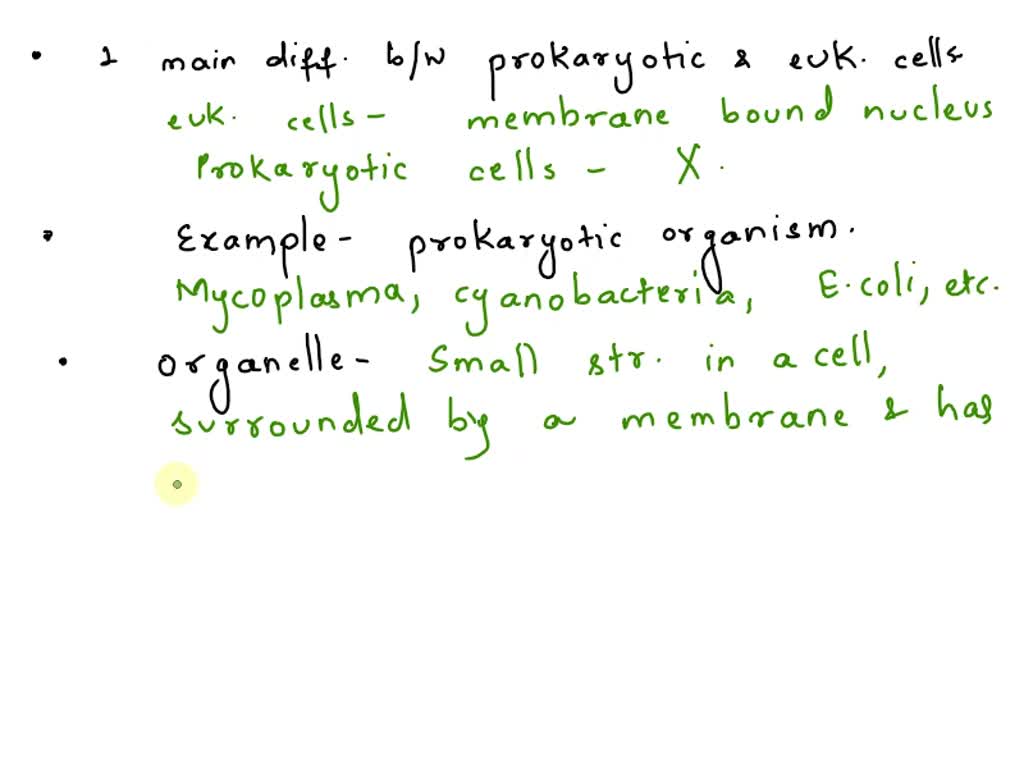 • 1 main diff. b/w prokaryotic & euk. cells
euk. cells - membrane bound nucleus
Prokaryotic cells - X.
• Example - prokaryotic organism.
Mycoplasma, cyanobacteria, E.coli, etc.
• Organelle - Small str. in a cell,
surrounded by a membrane & has